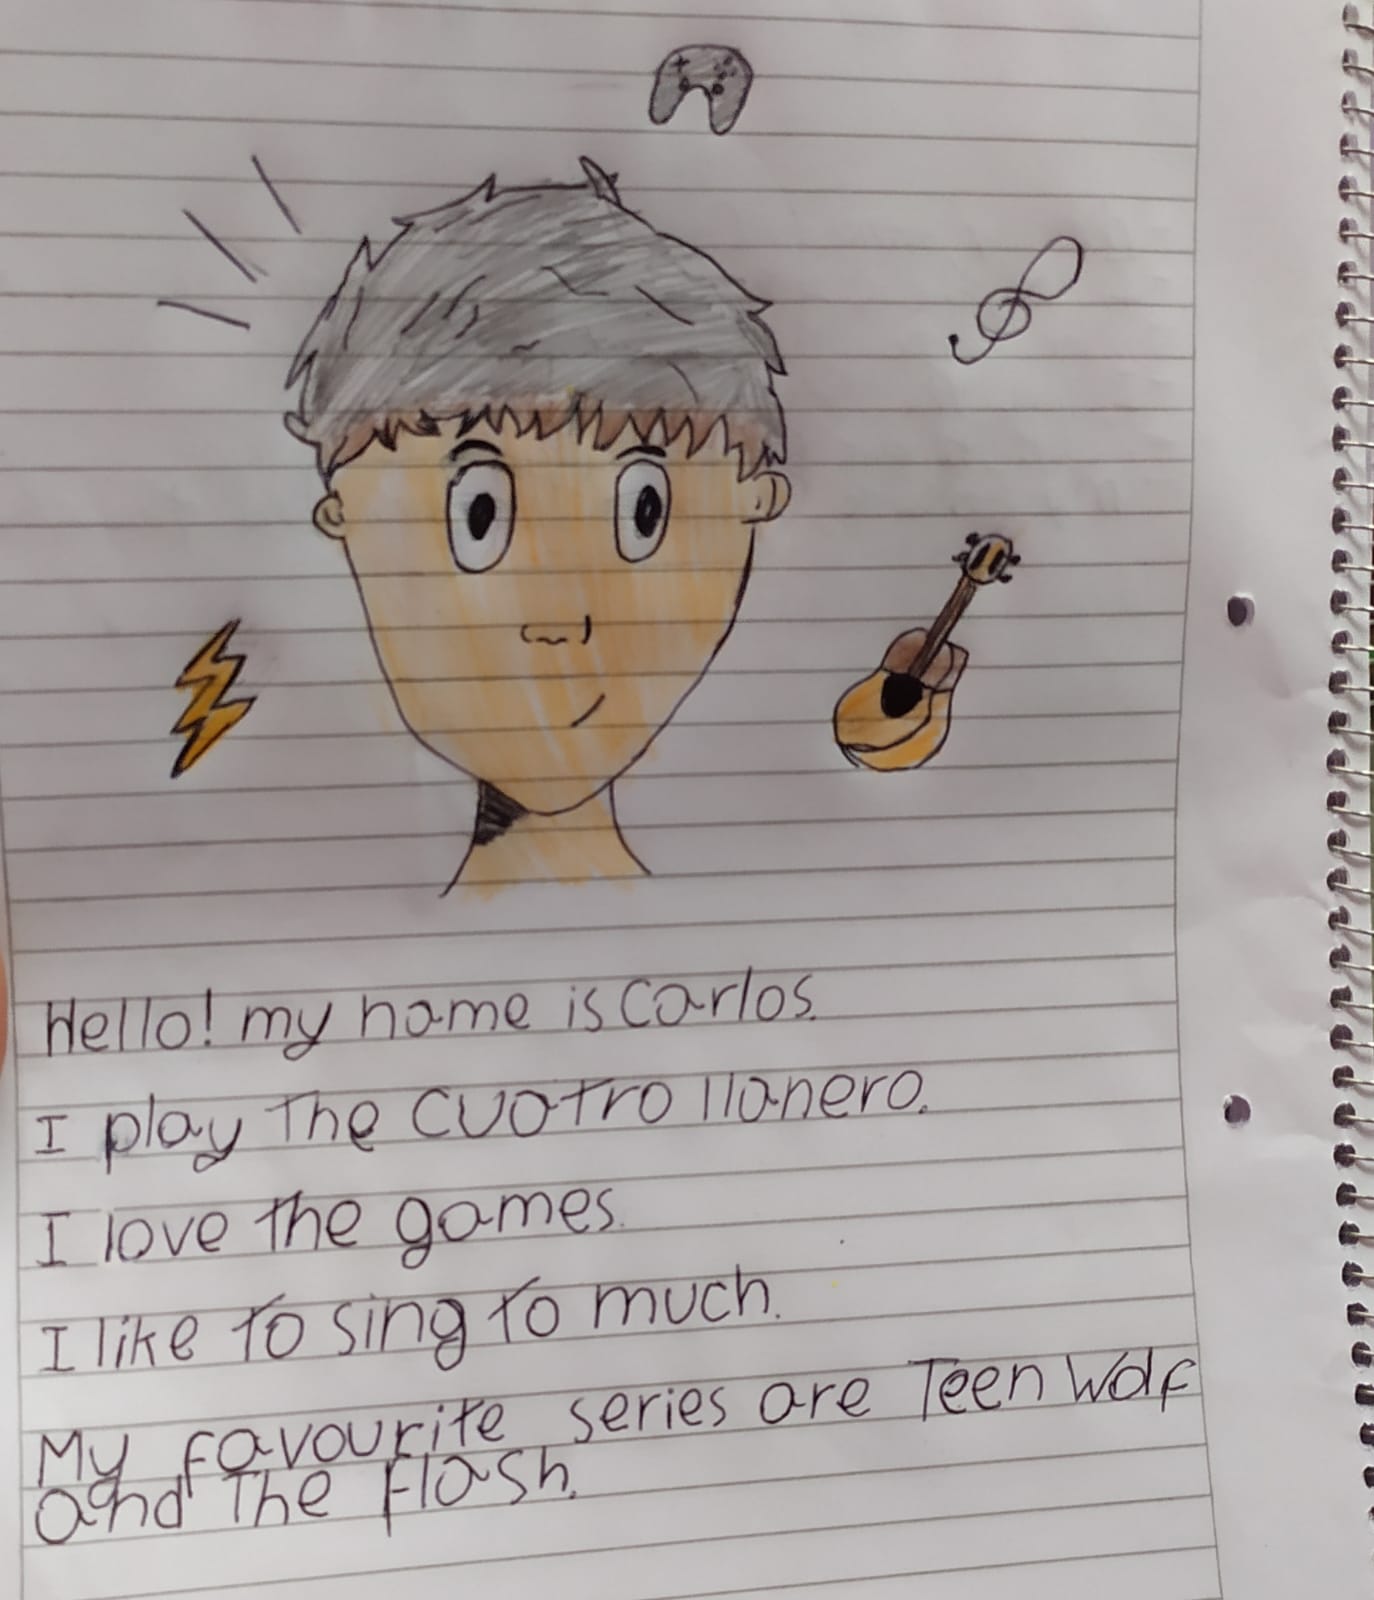 Hello! my name is Carlos.
I play The cuatro llanero.
I love the games.
I like to sing to much.
My favourite series are Teen Wolf
and The Flash.